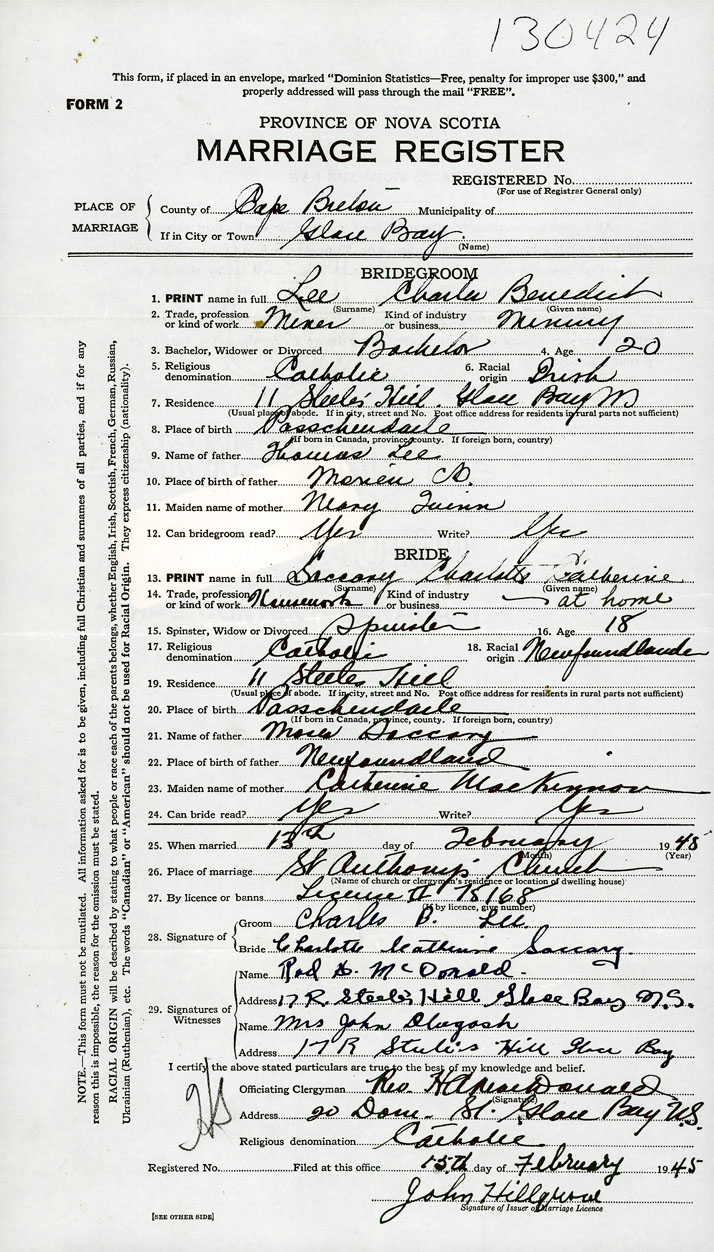 130424
This form, if placed in an envelope, marked "Dominion Statistics—Free, penalty for improper use $300," and
properly addressed will pass through the mail "FREE".
FORM 2
PROVINCE OF NOVA SCOTIA
MARRIAGE REGISTER
REGISTERED No.
(For use of Registrar General only)
PLACE OF MARRIAGE
County of Cape Breton Municipality of
If in City or Town Glace Bay
(Name)
BRIDEGROOM
1. PRINT name in full Lee Charles Benedict
(Surname) (Given name)
2. Trade, profession or kind of work Miner Kind of industry or business Mining
3. Bachelor, Widower or Divorced Bachelor 4. Age 20
5. Religious denomination Catholic 6. Racial origin Irish
7. Residence 11 Steele's Hill. Glace Bay
(Usual place of abode. If in city, street and No. Post office address for residents in rural parts not sufficient)
8. Place of birth Passchendaele
(If born in Canada, province, county. If foreign born, country)
9. Name of father Thomas Lee
10. Place of birth of father
11. Maiden name of mother Mary Quinn
12. Can bridegroom read? Yes Write? Yes
BRIDE
13. PRINT name in full Saccary Charlotte Catherine
(Surname) (Given name)
14. Trade, profession or kind of work Housework Kind of industry or business at home
15. Spinster, Widow or Divorced Spinster 16. Age 18
17. Religious denomination Catholic 18. Racial origin Newfoundlander
19. Residence 11 Steeles Hill
(Usual place of abode. If in city, street and No. Post office address for residents in rural parts not sufficient)
20. Place of birth Passchendaele
(If born in Canada, province, county. If foreign born, country)
21. Name of father Moses Saccary
22. Place of birth of father Newfoundland
23. Maiden name of mother Catherine MacKinnon
24. Can bride read? Yes Write? Yes
25. When married 13th day of February 1945
(Month) (Year)
26. Place of marriage St Anthony's Church
(Name of church or clergymen's residence or location of dwelling house)
27. By licence or banns Licence # 78168
(If by licence, give number)
28. Signature of
Groom Charles B. Lee.
Bride Charlotte Catherine Saccary.
29. Signatures of Witnesses
Name Rod D. McDonald.
Address 17 R. Steele's Hill Glace Bay N.S.
Name Mrs John Dlugosh
Address 17 R Steeles Hill Glace Bay
I certify the above stated particulars are true to the best of my knowledge and belief.
Officiating Clergyman Rev. H A MacDonald
(Signature)
Address 20 Dom. St. Glace Bay N.S.
Religious denomination Catholic
Registered No. Filed at this office 15th day of February 1945
John Hillgrove
Signature of Issuer of Marriage Licence
[SEE OTHER SIDE]
NOTE.—This form must not be mutilated. All information asked for is to be given, including full Christian and surnames of all parties, and if for any
reason this is impossible, the reason for the omission must be stated.
RACIAL ORIGIN will be described by stating to what people or race each of the parents belongs, whether English, Irish, Scottish, French, German, Russian,
Ukrainian (Ruthenian), etc. The words "Canadian" or "American" should not be used for Racial Origin. They express citizenship (nationality).